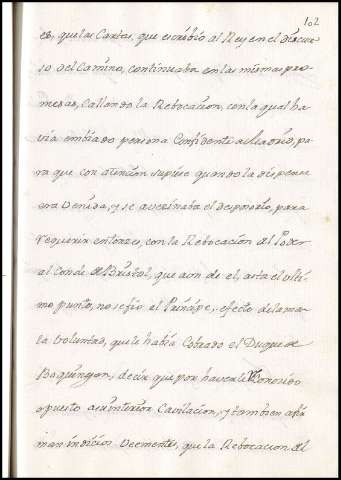 102
es, que las Cartas, que escribio al Rey en el discur
so del Camino, continuaba en las mismas pro
mesas, Callando la Rebocacion, con la qual ha
via embiado persona Confidente a Madrid, pa
ra que con atencion supiese quando la dispensa
era Venida, y se avecinaba el desposorio, para
requerir entonces, con la Rebocacion del Poder
al Conde de Bristol, que aun de el, asta el ulti
mo punto, no se fio el Principe, efecto de la ma
la Voluntad, que le habia Cobrado el Duque de
Boquingan; decir que por haverle Conocido
opuesto a su interior Cavilacion, y tambien afir
man indicios Vehementes, que la Rebocacion del